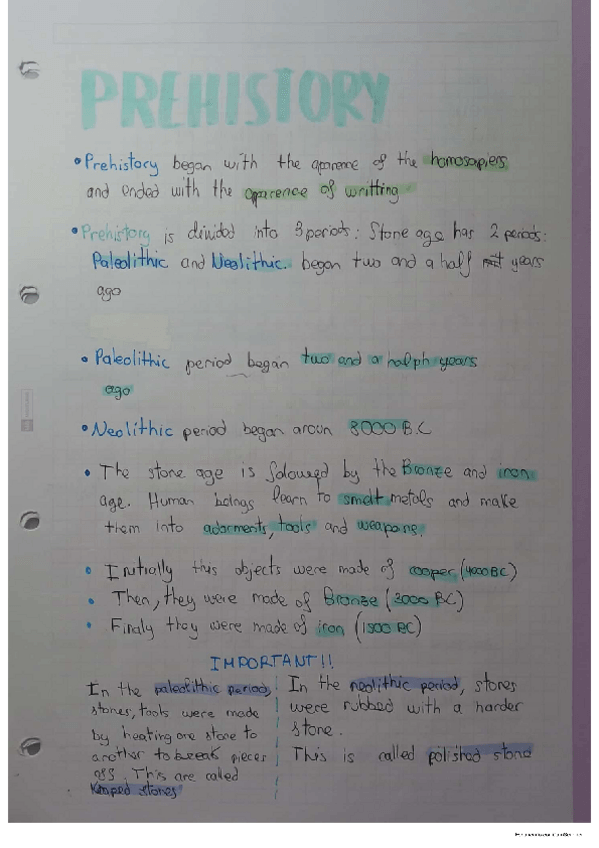 PREHISTORY
• Prehistory began with the aparence of the homosapiens
and ended with the aparence of writting
• Prehistory is divided into 3 periods: Stone age has 2 periods:
Paleolithic and Neolithic. began two and a half years
ago
• Paleolithic period began two and a halph years
ago
• Neolithic period began aroun 8000 B.C
• The stone age is foloued by the Bronze and iron
age. Human beings learn to smelt metals and make
them into adorments, tools and weapons.
• Initially this objects were made of cooper (4000 BC)
• Then, they were made of Bronze (3000 BC)
• Finaly they were made of iron (1500 BC)
IMPORTANT!!
In the paleolithic period,
stones, tools were made
by heating one stone to
another to break pieces
off. This are called
stones
In the neolithic period, stones
were rubbed with a harder
stone.
This is called polished stone